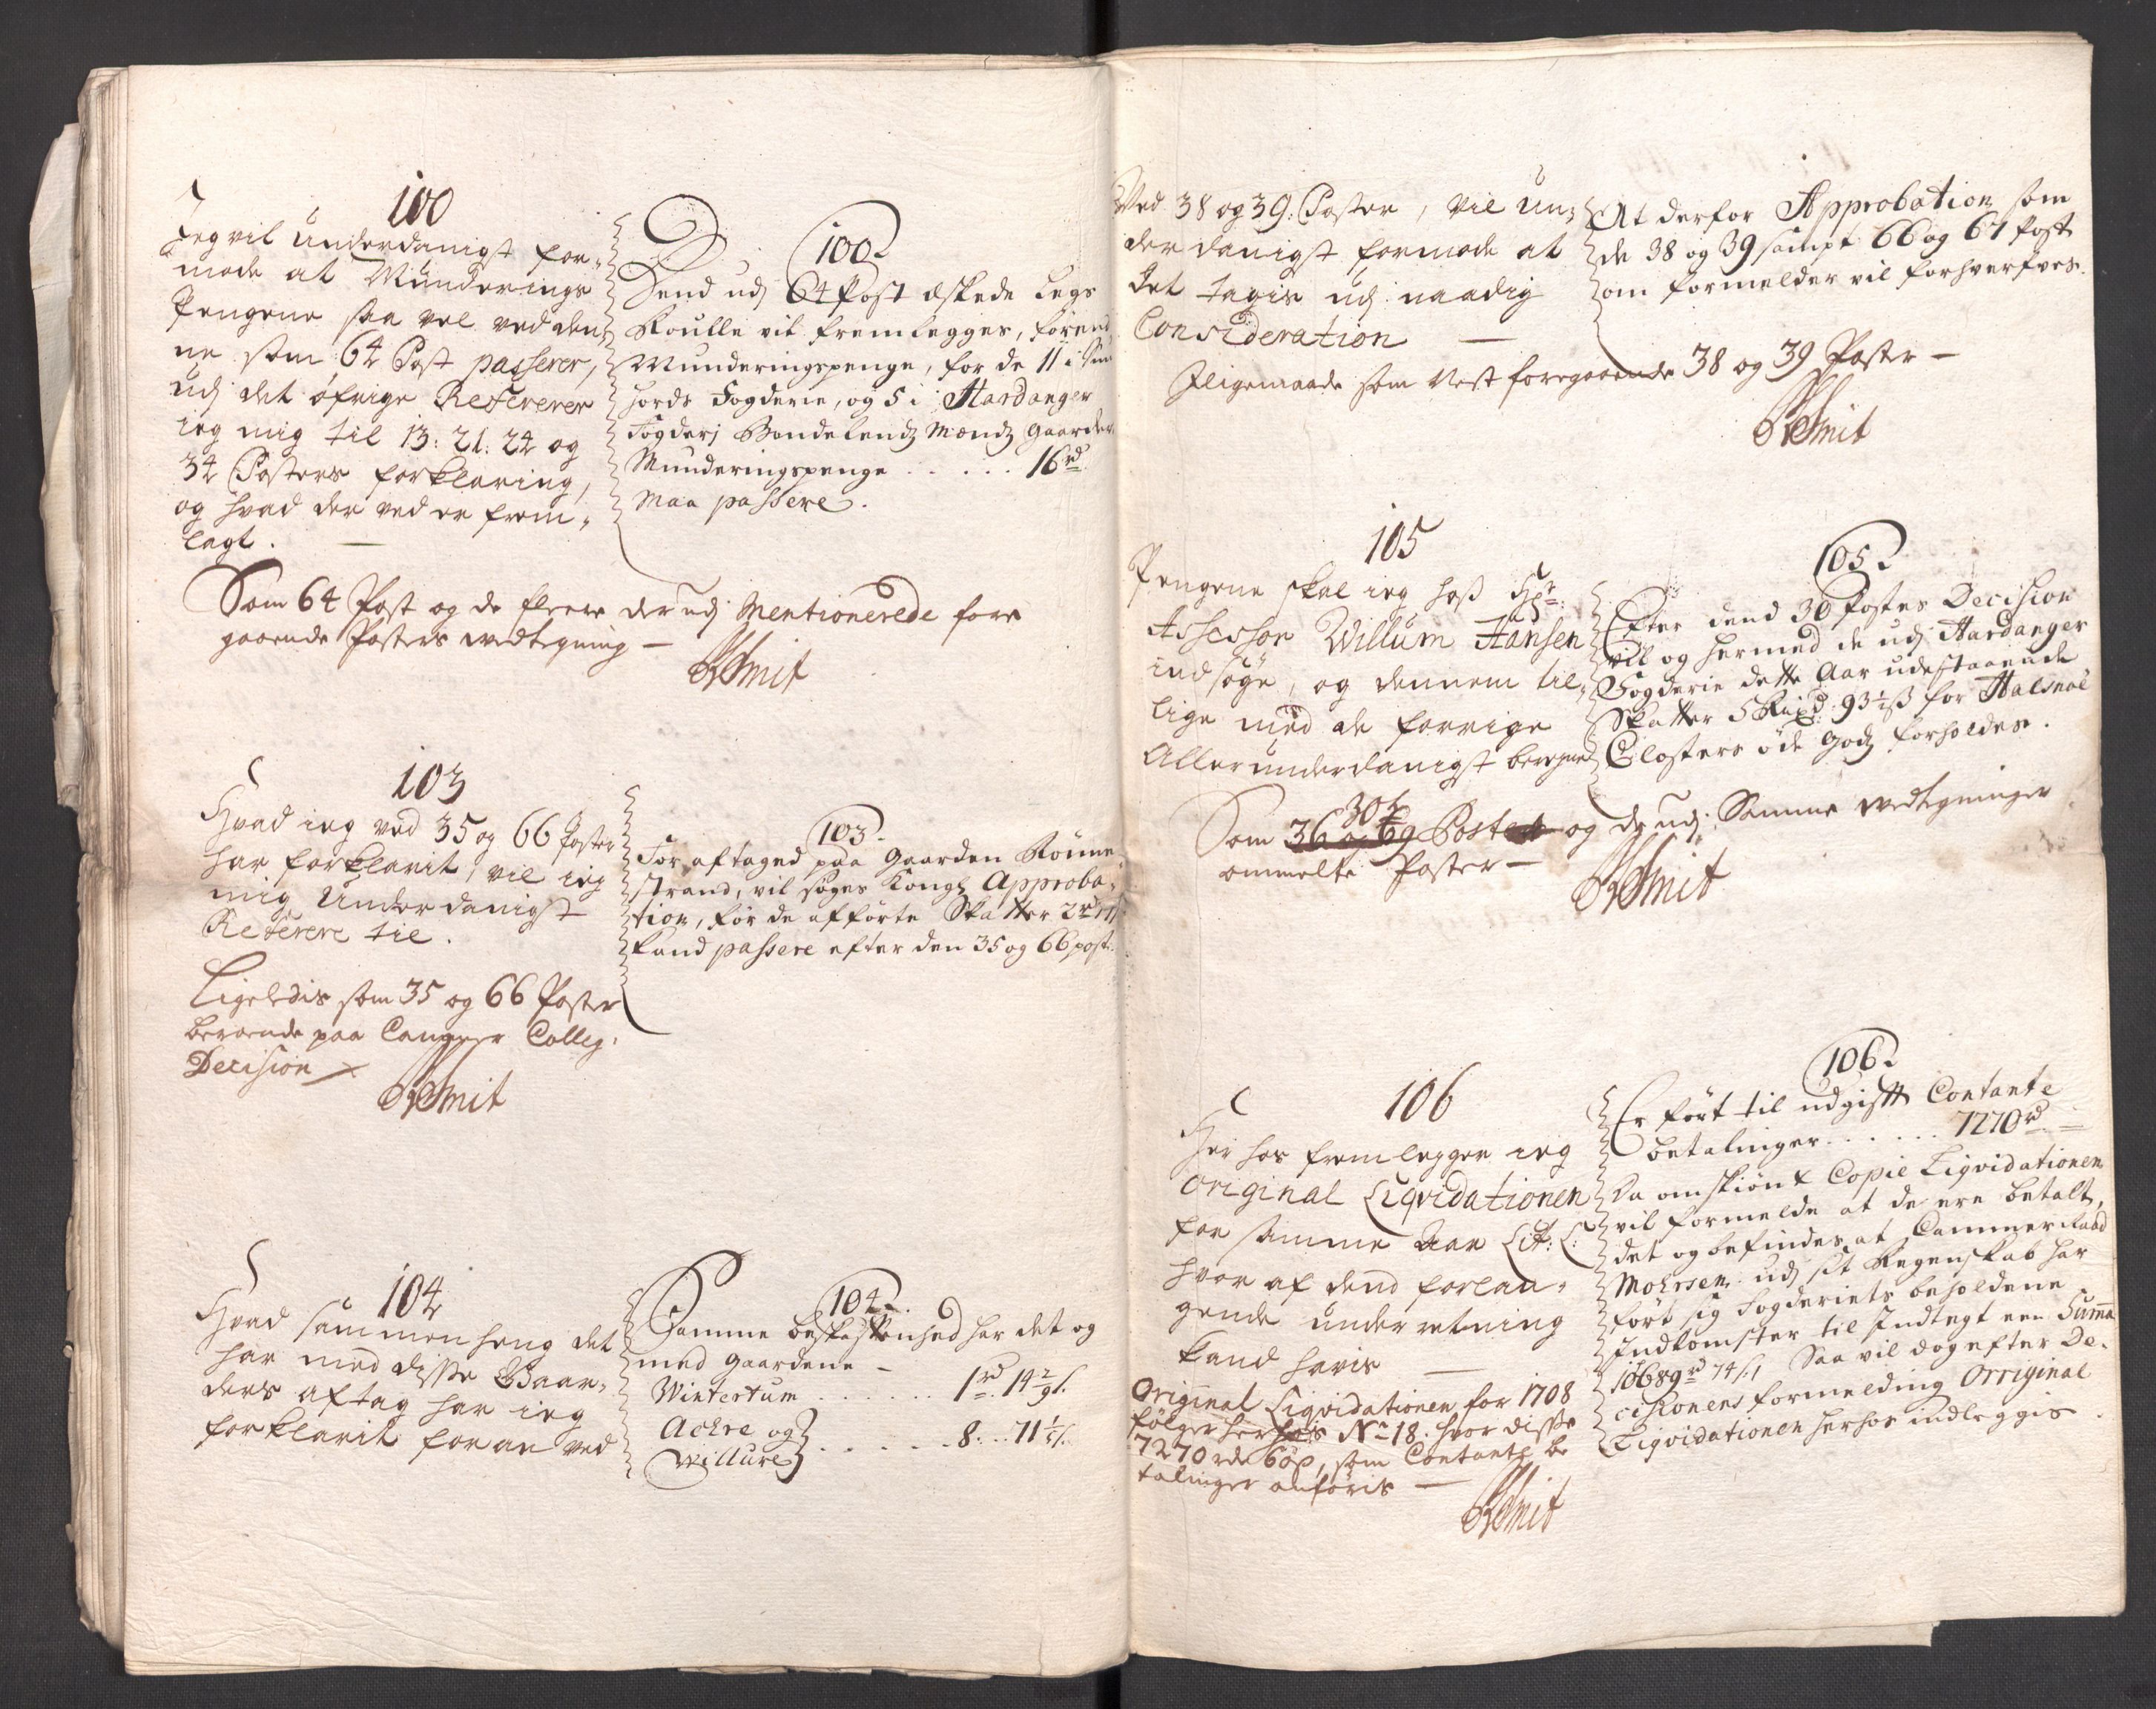 100
Jeg vil underdanigst for-
mode at Munderings
Pengene saa vel ved den-
ne som 64 Post passerer,
udj det øfrige Refererer
ieg mig til 13: 21: 24 og
34 Posters forklaring,
og hvad der ved er frem-
lagt.
100.
Dend udj 64 Post æskede Legs
Roulle vil fremlegges, førend
Munderingspenge, for de 11 i Sun
hords Fogderie, og 5 i Hardanger
Fogderj Bondelendz Mændz Gaarder
Munderingspenge . . . . . 16 rd
Maa passere.
Som 64 Post og de fleere der udj Mentionerede fore
gaaende Posters vedtegning —
Smit
103
Hvad ieg ved 35 og 66 Poster
har forklarit, vil ieg
mig underdanigst
Referere til.
103.
For aftaged paa Gaarden Rønne-
strand, vil søges Kongl Approba-
tion, før de afførte Skatter 2 rd
kand passere efter den 35 og 66 post.
Ligeledis som 35 og 66 Poster
beroende paa Cammer Colleg:
Decision
Smit
104
Hvad sammenheng det
har med disse Gaar-
ders aftag har ieg
forklarit foran ved
104.
Samme beskaffenhed har det og
med Gaardene —
Wintertum . . . . . . 1 rd 14 2/9 s.
Ackre og
Willure . . . . . . 8 . . 71 1/5 s.
Ved 38 og 39: Poster, vil un-
derdanigst formode at
Det tagis udj naadig
Consideration —
At derfor Approbation som
de 38 og 39 sampt 66 og 67 Post
om formelder vil forhverfves.
Jligemaade som Nest foregaaende 38 og 39 Poster —
Smit
105
Pengene skal ieg hoß Hr:
Assessor Willum Hansen
indsøge, og dennem til-
lige med de forrige
Allerunderdanigst beregne
105.
Efter dend 30 Postes Decision
vil og hermed de udj Hardanger
Fogderie dette Aar udestaaende
Skatter 5 Rixd: 93 1/2 ß for Halsnøe
Closters øde Godz forholdes.
Som 36 og 69 Poster 30te og de udj Samme vedtegninger
ommelte Poster —
Smit
106
Her hos fremlegger ieg
Original Liqvidationen
for samme Aar Lit: C:
hvor af dend forlan-
gende underretning
kand havis —
106.
Er ført til udgifft Contante
betalinger . . . . . . 7270 rd —
Da omskiønt Copie Liqvidationen
vil formelde at de ere betalt,
det og befindes at Cammerraad
Mohrsen udj sit Regenskab har
ført sig Fogderiets beholdene
Indkomster til Indtegt een Summa
10689 rd 74 s. Saa vil dog efter De-
cisionens formelding Orriginal
Liqvidationen herhos indleggis.
Original Liqvidationen for 1708
følger herhos No 18. hvor disse
7270 rdr 60 s, som Contante be
talinger anføris —
Smit